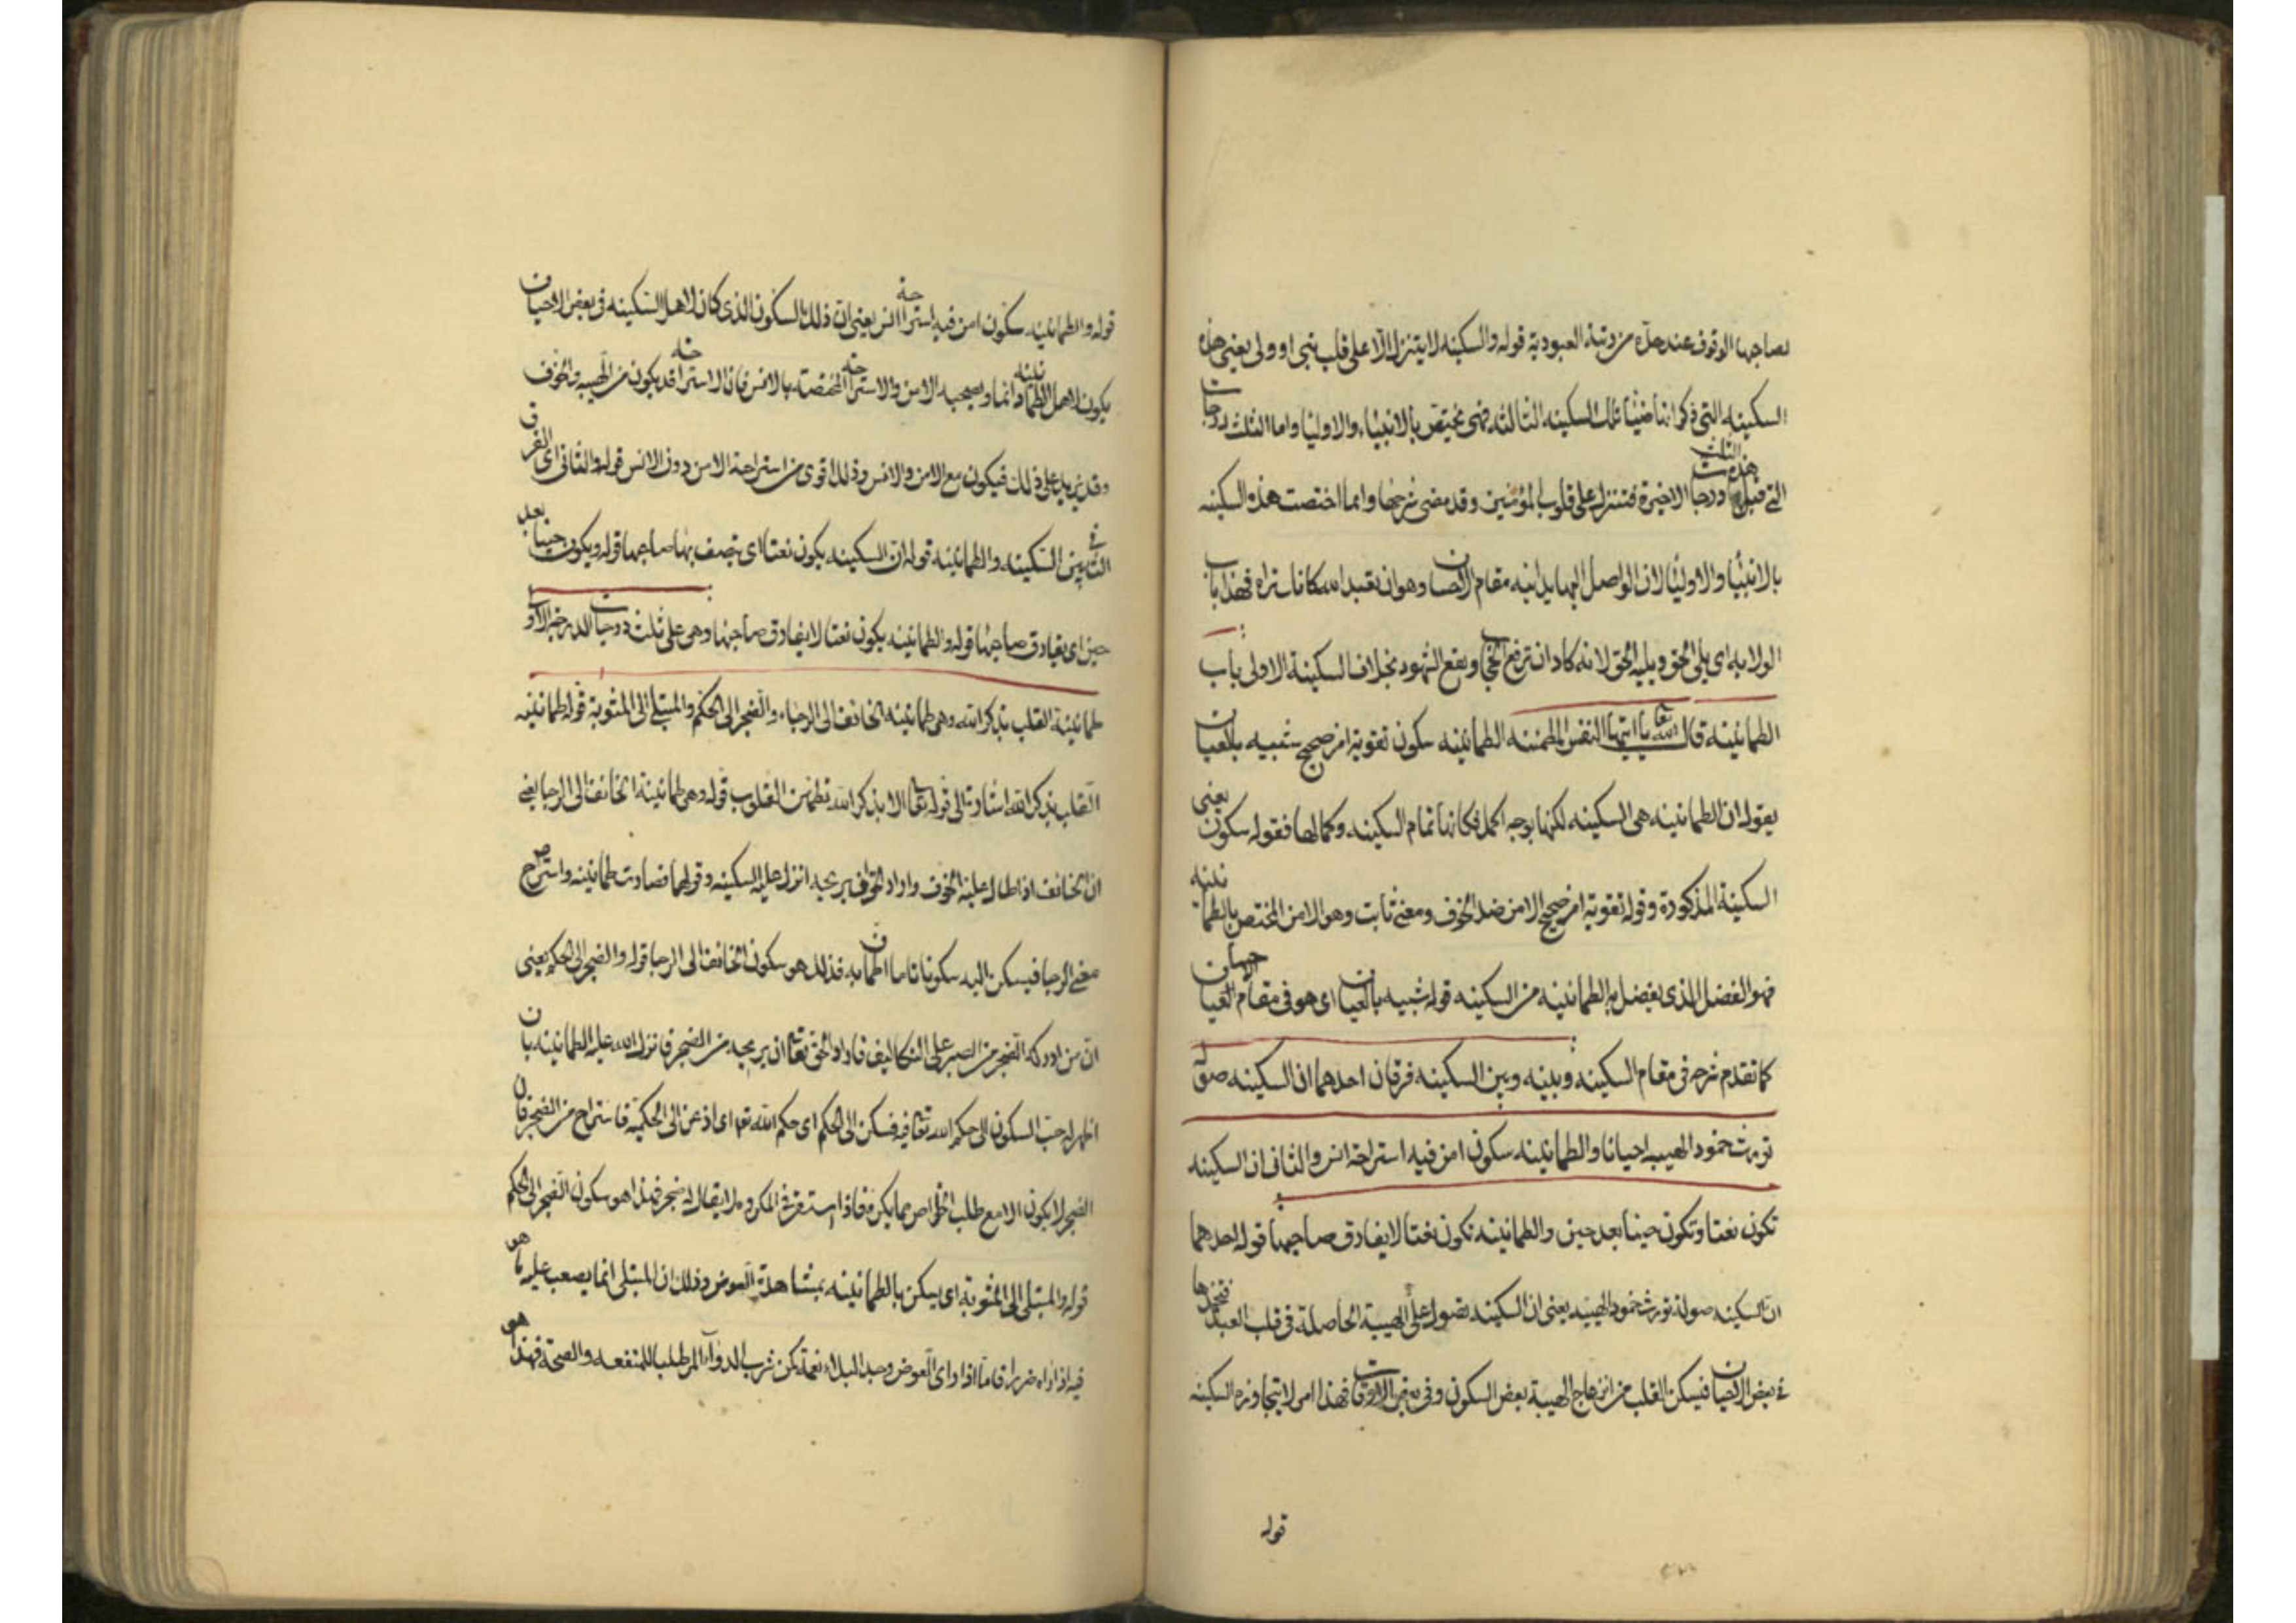 لصاحبها الوقوف عند حده من رتبة العبودية قوله والسكينه لا يتنزل الا على قلب نبي او ولى يعني هذه
السكينه التي ذكرانها ضيا تلك السكينه الثالثه فهي يختص بالانبياء والاوليا واما الثلث درجات
التي قبل هذه الثلث ودرجات الاخيرة فتنزل على قلوب المؤمنين وقد مضى شرحها وانما اختصت هذه السكينه
بالانبيا والاوليا لان الواصل اليها يدانيه مقام الاحسان وهو ان تعبد الله كانك تراه فهذا باب
الولايه اى يلى الحق ويليه الحق لانه كاد ان ترفع الحجاب ويقع الشهود بخلاف السكينة الاولى باب
الطمانينه قال الله تعا يا ايتها النفس المطمئنه الطمانينه سكون تقويه امن صحيح شبيه بالعيان
يقوله ان الطمانينه هى السكينه لكنها بوجه اكمل فكانها تمام السكينه وكمالها فقوله سكون يعنى
السكينة المذكورة وقوله تقويه امن صحيح الامن ضد الخوف ومعنى ثابت وهو الامن المختص بالطمانينه
فهو الفضل الذى يفضل به الطمانينه من السكينه قوله شبيه بالعيان اى هو فى مقام العيان
كما تقدم شرحه فى مقام السكينه وبينه وبين السكينه فرقان احدهما ان السكينه صولة
تورث خمود الهيبه احيانا والطمانينه سكون امن فيه استراحة انس والثانى ان السكينه
تكون نعتا وتكون حينا بعد حين والطمانينه تكون نعتا لا يفارق صاحبها قوله احدهما
ان السكينه صولة تورث خمود الهيبه يعنى ان السكينه تصول على الهيبة الحاصلة فى قلب العبد فتخمدها
فى بعض الاحيان فيسكن القلب من انزعاج الهيبة بعض السكون وفى بعض الاوقات فهذا امر لا يتجاوزه السكينه
قوله
قوله والطمانينه سكون امن فيه استراحة انس يعنى ان ذلك السكون الذى كان لاهل السكينه فى بعض الاحيان
يكون لاهل الطمانينه دائما ويصحبه الامن والاستراحة المختصة بالانس فان الاستراحة قد يكون من الهيبه والخوف
وقد يزيد على ذلك فيكون مع الامن والانس وذلك اقوى من استراحة الامن دون الانس قوله والثانى اى الفرق
الثانى بين السكينه والطمانينه قوله ان السكينه يكون نعتا اى يتصف بها صاحبها قوله ويكون حينا بعد
حين اى يفارق صاحبها قوله والطمانينه يكون نعتا لا يفارق صاحبها وهى على ثلث درجات الدرجة الاولى
طمانينة القلب بذكر الله وهى طمانينه الخائف الى الرجاء والضجر الى الحكم والمبتلى الى المثوبة قوله طمانينه
القلب بذكر الله اشارة الى قوله تعا الا بذكر الله تطمئن القلوب قوله وهى طمانينة الخائف الى الرجا يعنى
ان الخائف اذا طال عليه الخوف واراد الحق ان يريحه انزل عليه السكينه وقولها فصارت طمانينه واستراح
معنى الرجا فيسكن اليه سكونا تاما اطمان به فذلك هو سكون الخائف الى الرجا قوله والضجر الى الحكم يعنى
ان من ادركه الضجر من الصبر على التكاليف فاراد الحق تعا ان يريحه من الضجر فانزل الله عليه الطمانينه بان
اظهر له حب السكون الى حكم الله تعا فيه فسكن الى الحكم اى حكم الله تعا اى اذعن الى الحكمة فاستراح من الضجر فان
الضجر لا يكون الا مع طلب الخلاص مما يكره فاذا استقر فى المكروه لا يقال له ضجر فهذا هو سكون الضجر الى الحكم
قوله والمبتلى الى المثوبة اى يسكن بالطمانينه بمشاهدة العوض وذلك ان المبتلى انما يصعب عليه ما هو
فيه اذا راه ضررا فاما اذا راى العوض وجد البلاء نعمة كمن شرب الدواء المر طلبا للمنفعه والصحة فهذا هو